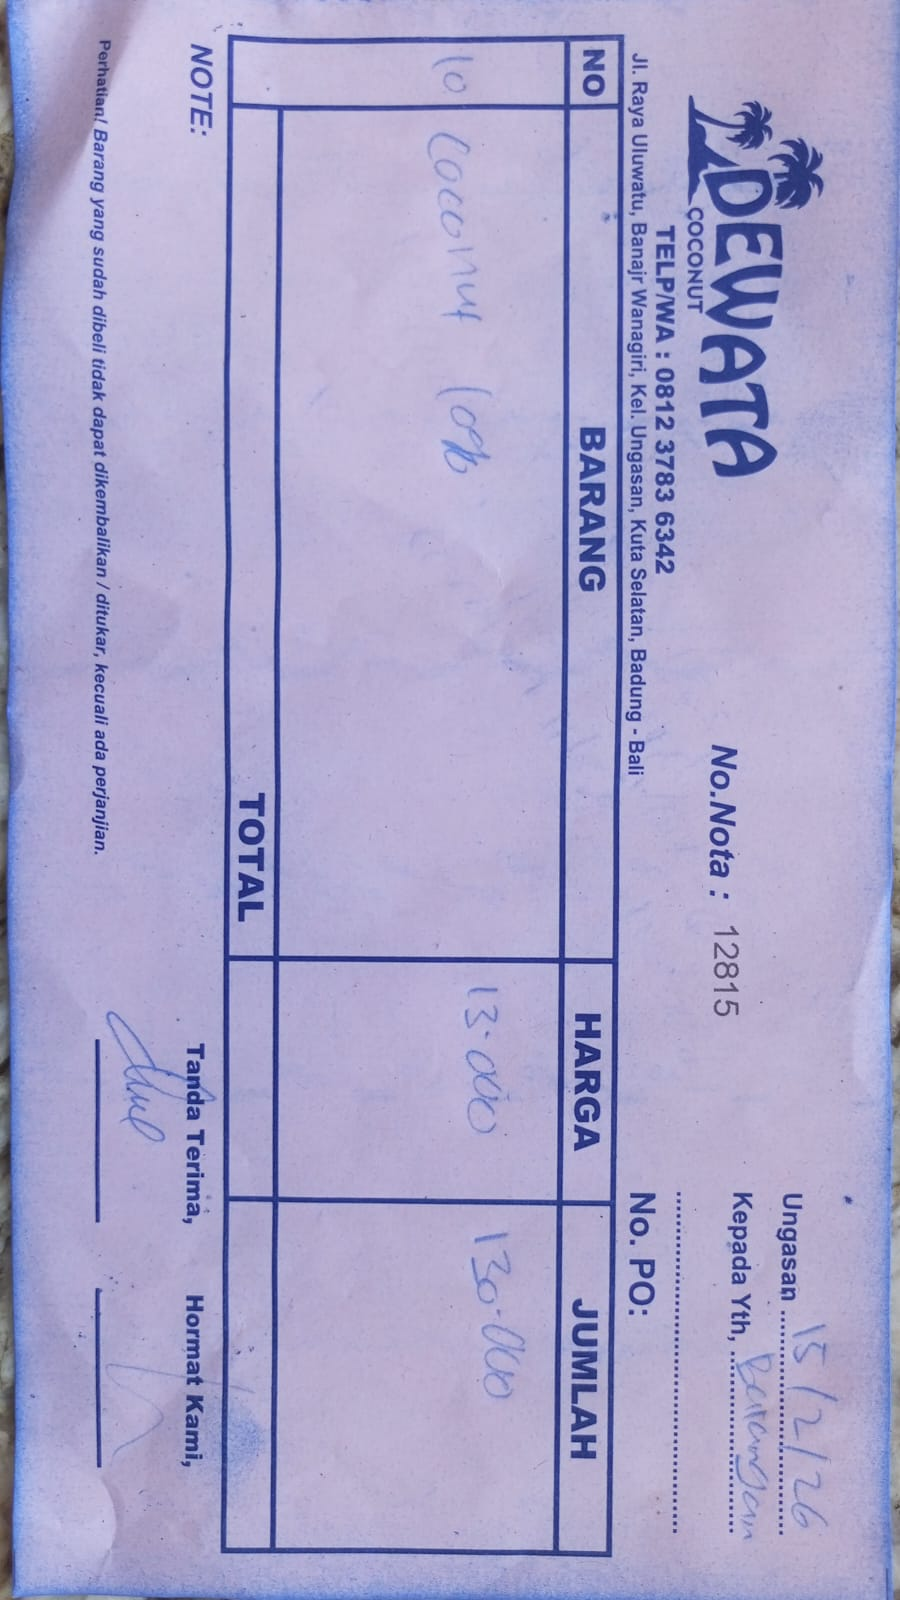 DEWATA
COCONUT
TELP/WA : 0812 3783 6342
Jl. Raya Uluwatu, Banajr Wanagiri, Kel. Ungasan, Kuta Selatan, Badung - Bali
No.Nota : 12815
Ungasan 15/2/26
Kepada Yth,
No. PO:
NO BARANG HARGA JUMLAH
10 Coconut 13.000 130.000
TOTAL
NOTE:
Tanda Terima, Hormat Kami,
Perhatian! Barang yang sudah dibeli tidak dapat dikembalikan / ditukar, kecuali ada perjanjian.